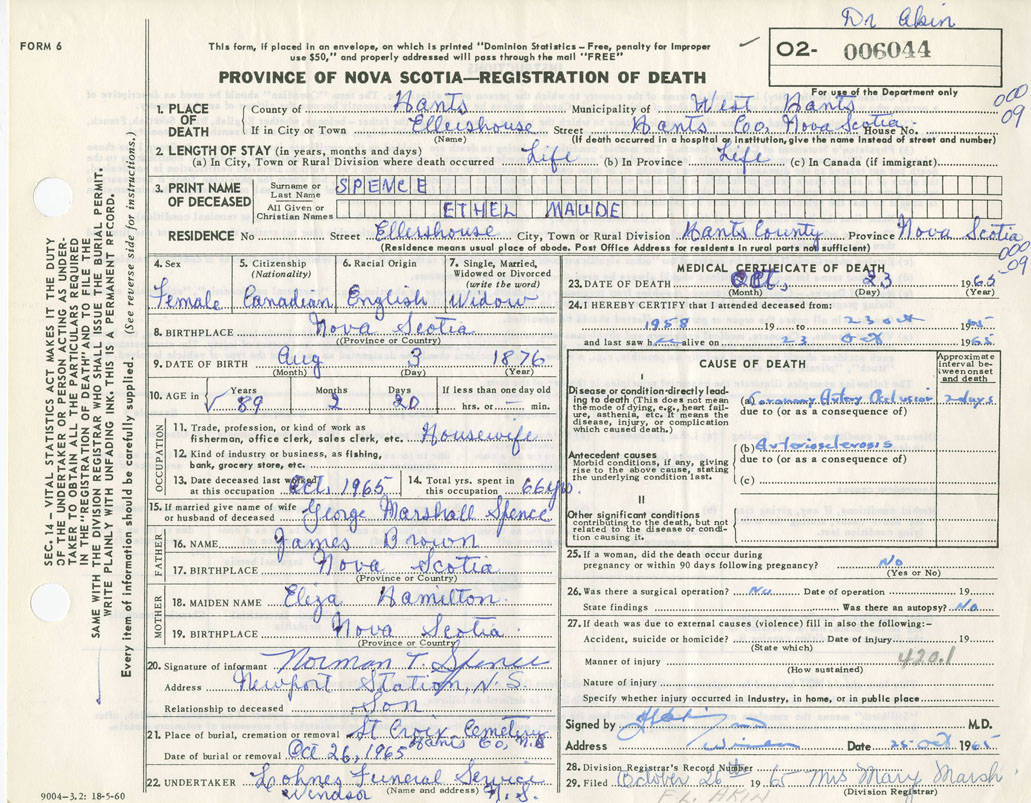 Dr Akin
FORM 6
This form, if placed in an envelope, on which is printed "Dominion Statistics – Free, penalty for improper
use $50," and properly addressed will pass through the mail "FREE"
O2- 006044
PROVINCE OF NOVA SCOTIA—REGISTRATION OF DEATH
For use of the Department only
000
09
1. PLACE OF DEATH County of Hants Municipality of West Hants
If in City or Town Ellershouse Street Hants Co, Nova Scotia House No.
(Name) (If death occurred in a hospital or institution, give the name instead of street and number)
2. LENGTH OF STAY (in years, months and days)
(a) In City, Town or Rural Division where death occurred Life (b) In Province Life (c) In Canada (if immigrant)
3. PRINT NAME OF DECEASED Surname or Last Name SPENCE
All Given or Christian Names ETHEL MAUDE
RESIDENCE No Street Ellershouse City, Town or Rural Division Hants County Province Nova Scotia
(Residence means usual place of abode. Post Office Address for residents in rural parts not sufficient)
000
09
4. Sex 5. Citizenship (Nationality) 6. Racial Origin 7. Single, Married, Widowed or Divorced (write the word)
Female Canadian English Widow
8. BIRTHPLACE Nova Scotia
(Province or Country)
9. DATE OF BIRTH Aug 3 1876
(Month) (Day) (Year)
10. AGE in Years Months Days If less than one day old
89 2 20 hrs. or – min.
OCCUPATION
11. Trade, profession, or kind of work as
fisherman, office clerk, sales clerk, etc. Housewife
12. Kind of industry or business, as fishing,
bank, grocery store, etc.
13. Date deceased last worked
at this occupation Oct, 1965
14. Total yrs. spent in
this occupation 66 yrs.
15. If married give name of wife
or husband of deceased George Marshall Spence
FATHER
16. NAME James Brown
17. BIRTHPLACE Nova Scotia
(Province or Country)
MOTHER
18. MAIDEN NAME Eliza Hamilton
19. BIRTHPLACE Nova Scotia
(Province or Country)
20. Signature of informant Norman T. Spence
Address Newport Station, N.S.
Relationship to deceased Son
21. Place of burial, cremation or removal St Croix Cemetery
Hants Co, N.S
Date of burial or removal Oct 26, 1965
22. UNDERTAKER Lohnes Funeral Service
(Name and address)
Windsor N.S.
9004–3.2: 18-5-60
MEDICAL CERTIFICATE OF DEATH
23. DATE OF DEATH Oct, 23 1965
(Month) (Day) (Year)
24. I HEREBY CERTIFY that I attended deceased from:
1958 19 to 23 oct 1965
and last saw her alive on 23 Oct 1965
CAUSE OF DEATH
Approximate interval between onset and death
I
Disease or condition directly leading to death (This does not mean the mode of dying, e.g., heart failure, asthenia, etc. It means the disease, injury, or complication which caused death.)
(a) Coronary Artery Occlusion 2 days
due to (or as a consequence of)
Antecedent causes
Morbid conditions, if any, giving rise to the above cause, stating the underlying condition last.
(b) Arteriosclerosis
due to (or as a consequence of)
(c)
II
Other significant conditions
contributing to the death, but not related to the disease or condition causing it.
25. If a woman, did the death occur during
pregnancy or within 90 days following pregnancy? No
(Yes or No)
26. Was there a surgical operation? No Date of operation 19
State findings Was there an autopsy? No
27. If death was due to external causes (violence) fill in also the following:–
Accident, suicide or homicide? Date of injury 19
(State which)
Manner of injury 420.1
(How sustained)
Nature of injury
Specify whether injury occurred in industry, in home, or in public place
Signed by M.D.
Address Windsor Date 25 Oct 1965
28. Division Registrar's Record Number
29. Filed October 26th 1965 Mrs Mary Marsh
(Division Registrar)
F.L. AKIN
SEC. 14 – VITAL STATISTICS ACT MAKES IT THE DUTY
OF THE UNDERTAKER OR PERSON ACTING AS UNDER-
TAKER TO OBTAIN ALL THE PARTICULARS REQUIRED
IN THE "REGISTRATION OF DEATH" AND TO FILE THE
SAME WITH THE DIVISION REGISTRAR WHO SHALL ISSUE THE BURIAL PERMIT.
WRITE PLAINLY WITH UNFADING INK. THIS IS A PERMANENT RECORD.
Every item of information should be carefully supplied. (See reverse side for instructions.)